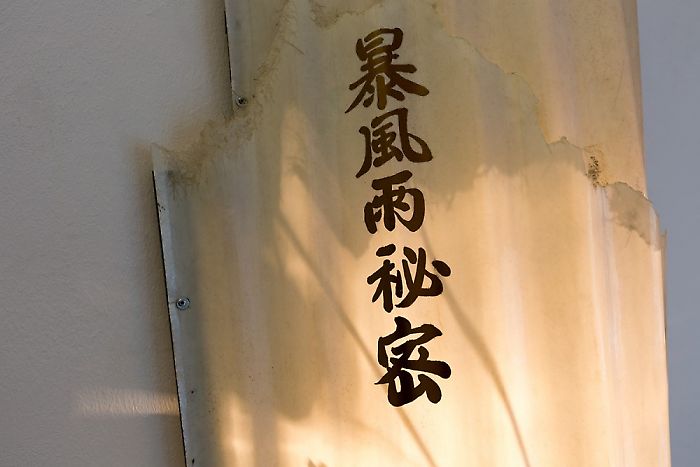 暴風雨秘密